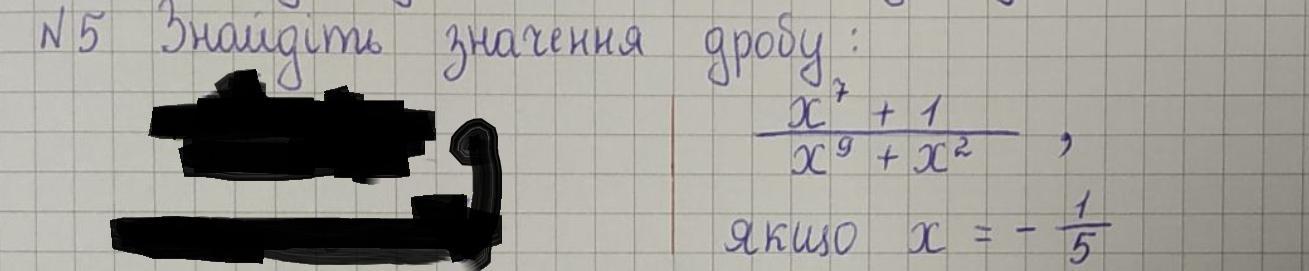 N5 Знайдіть значення дробу:
x⁷ + 1
x⁹ + x² ,
якщо x = - 1/5